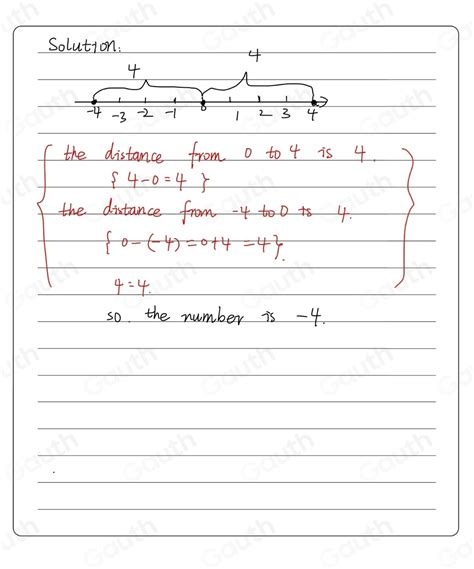 Solution:
4
4
-4 -3 -2 -1 0 1 2 3 4
the distance from 0 to 4 is 4.
{ 4-0=4 }
the distance from -4 to 0 is 4.
{ 0-(-4)=0+4 =4}.
4=4.
so. the number is -4.
Gauth